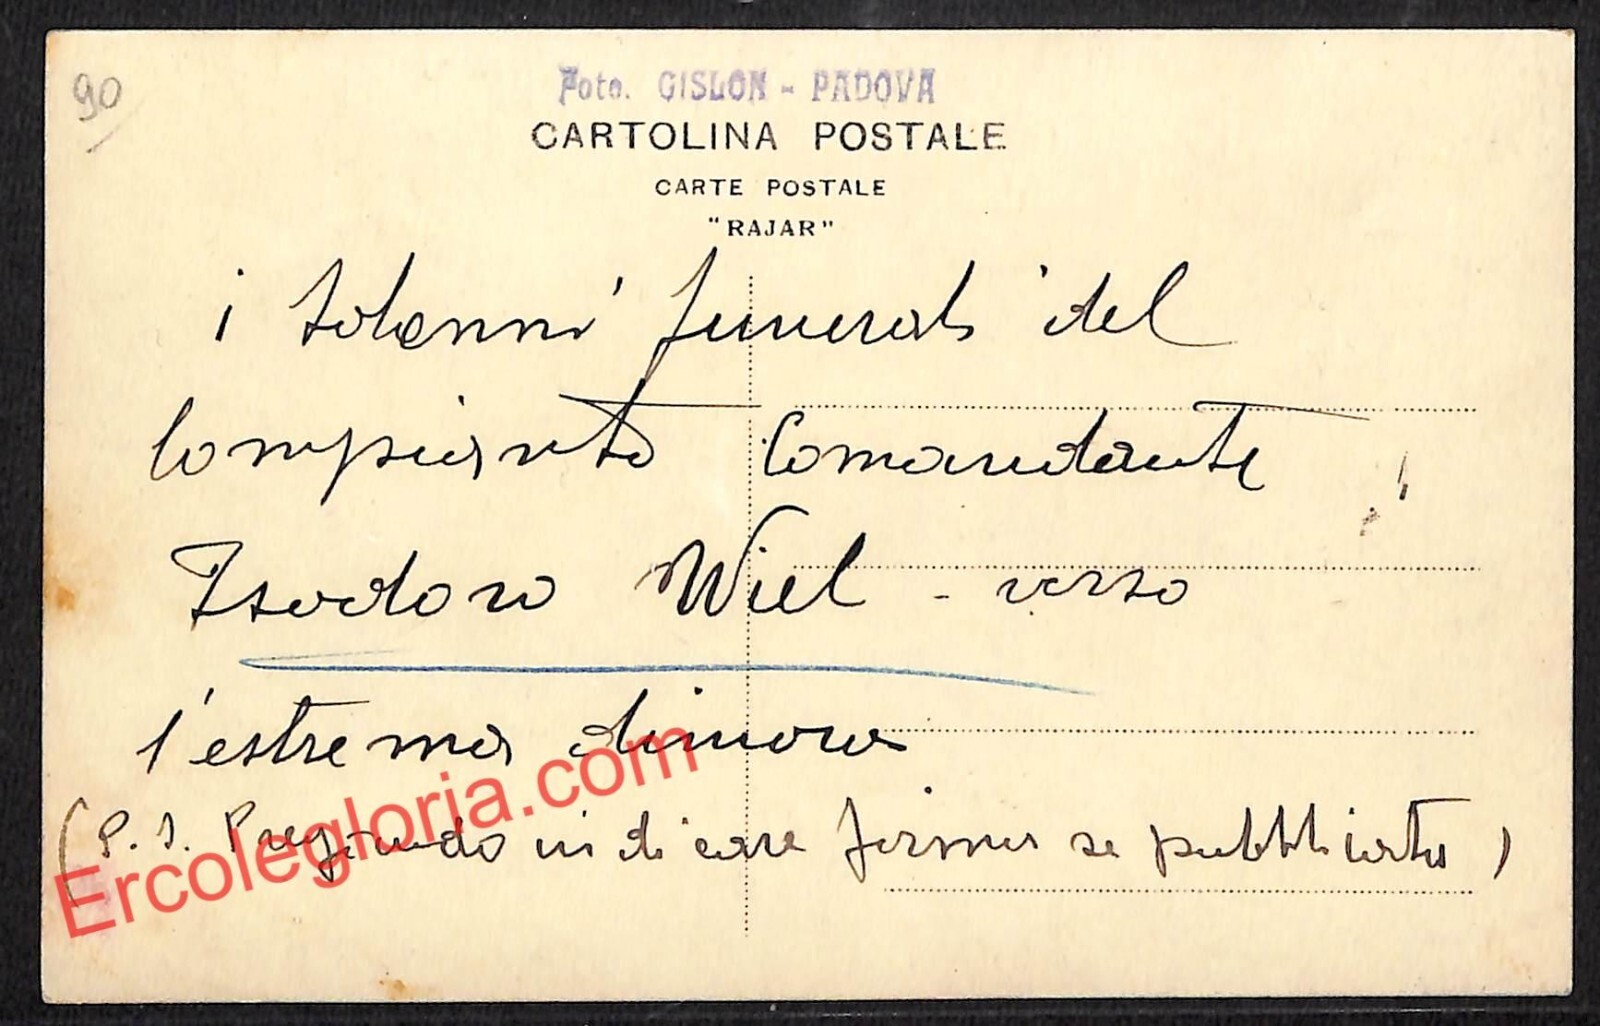 90
Foto. GISLON - PADOVA
CARTOLINA POSTALE
CARTE POSTALE
"RAJAR"
i solenni funerali del
Compianto Comandante
Isodoro Wiel - verso
l'estrema dimora
(P.S. Pregando indicare firma se pubblicata)
Ercolegloria.com